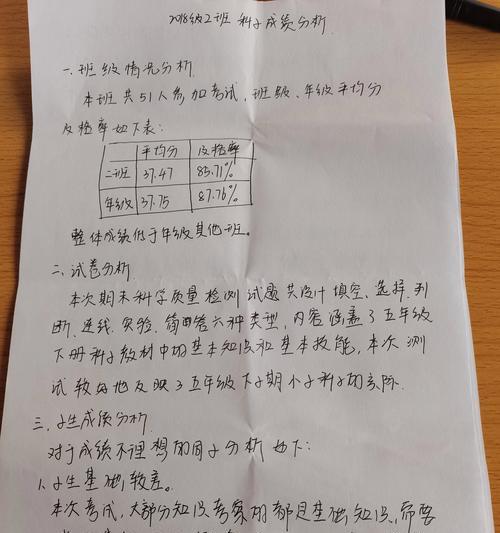 2018级2班 科学成绩分析
一、班级情况分析
本班共51人参加考试，班级、年级平均分
及格率如下表：
平均分 及格率
二班 37.47 83.71%
年级 37.75 87.76%
整体成绩低于年级其他班。
二、试卷分析
本次期末科学质量检测试题共设计填空、选择、判
断、连线、实验、简答六种类型，内容涵盖了五年级
下册科学教材中的基本知识和基本技能，本次测
试较好地反映了五年级下学期小学科学的实际.
三、学生成绩分析
对于成绩不理想的同学分析如下：
1、学生基础较差。
本次考试，大部分知识考察的都是基础知识，需要